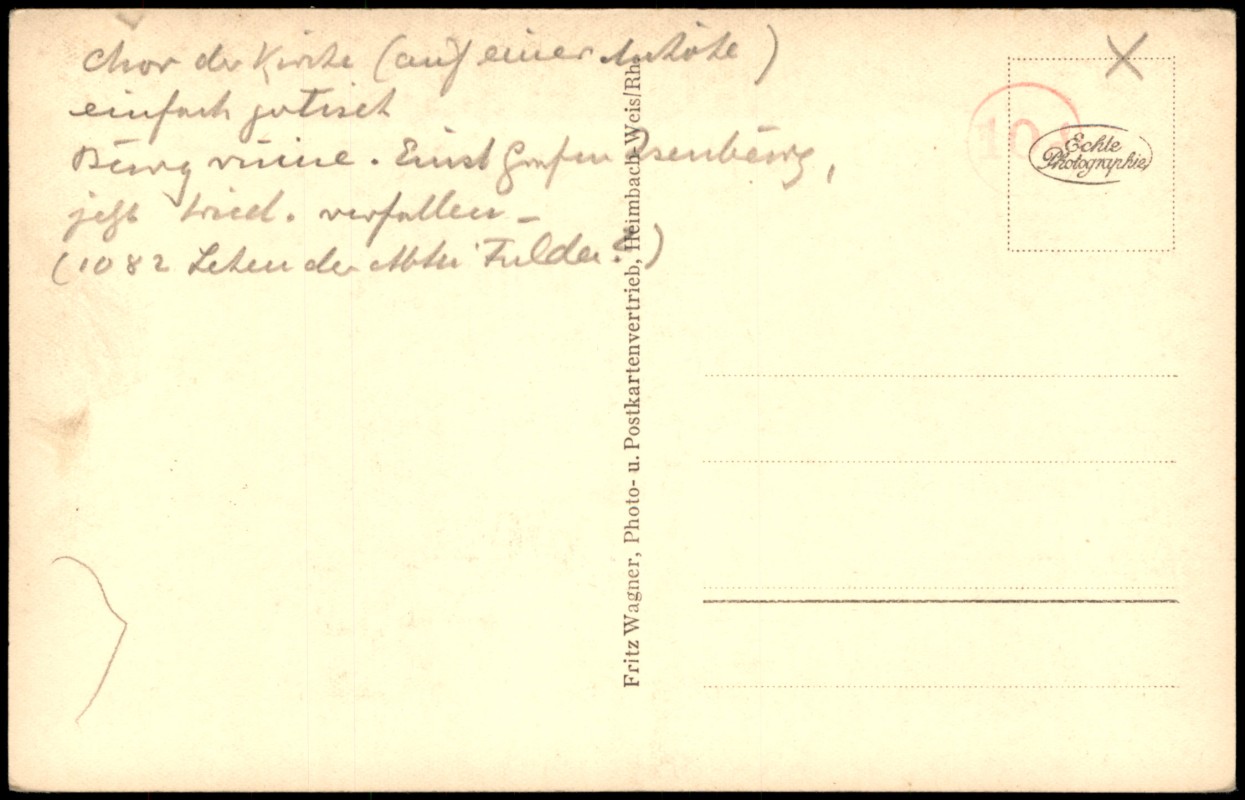 Chor der Kirche (auf einer Anhöhe)
einfach gotisch
Burgruine. Einst Grafen Isenburg,
jetzt verfallen –
(1082 Lehen der Abtei Fulda!)
Fritz Wagner, Photo- u. Postkartenvertrieb, Heimbach-Weis/Rh.
Echte
Photographie